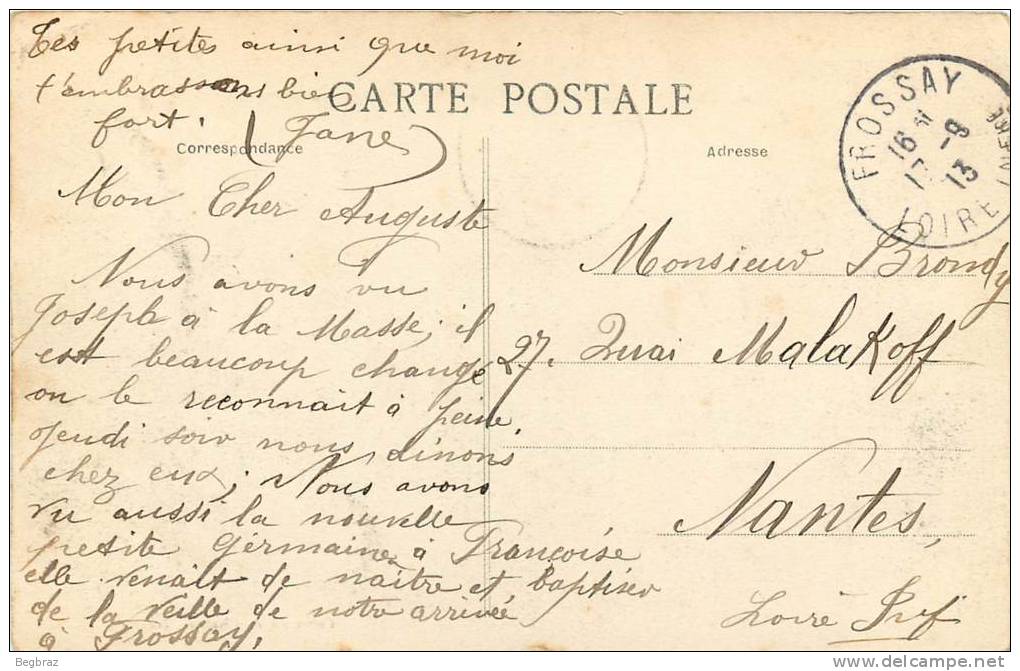 Tes petites ainsi que moi
t'embrassons bien
fort. (Jane)
CARTE POSTALE
Correspondance
Adresse
FROSSAY
16 -8
13
LOIRE INFRE
Mon Cher Auguste
Nous avons vu
Joseph à la Masse; il
est beaucoup changé
on le reconnait à peine.
Jeudi soir nous dinons
chez eux; Nous avons
vu aussi la nouvelle
petite Germaine à Françoise
elle venait de naître et baptiser
de la veille de notre arrivée
à Frossay.
Monsieur Brondy
27. Quai Malakoff
Nantes,
Loire Inf
Begbraz
www.delcampe.net